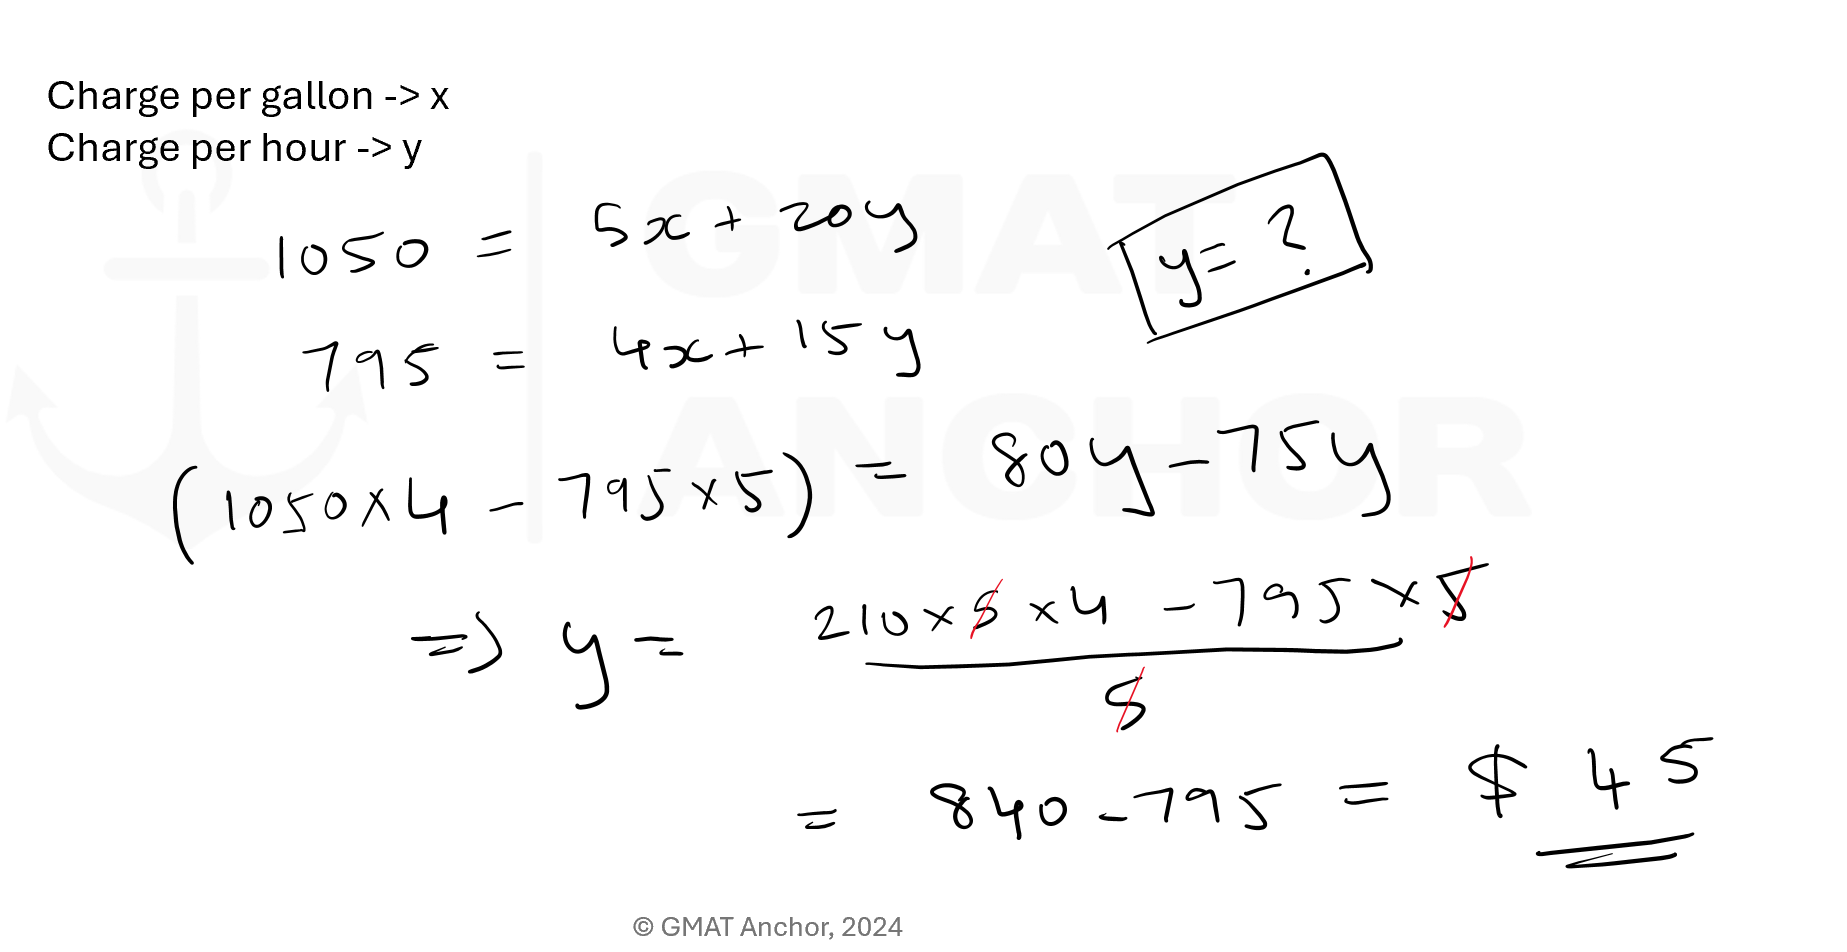 Charge per gallon -> x
Charge per hour -> y
GMAT
ANCHOR
1050 = 5x + 20y
y = ?
795 = 4x + 15y
(1050×4 - 795×5) = 80y - 75y
=> y = 210×5×4 - 795×5
5
= 840 - 795 = $ 45
© GMAT Anchor, 2024